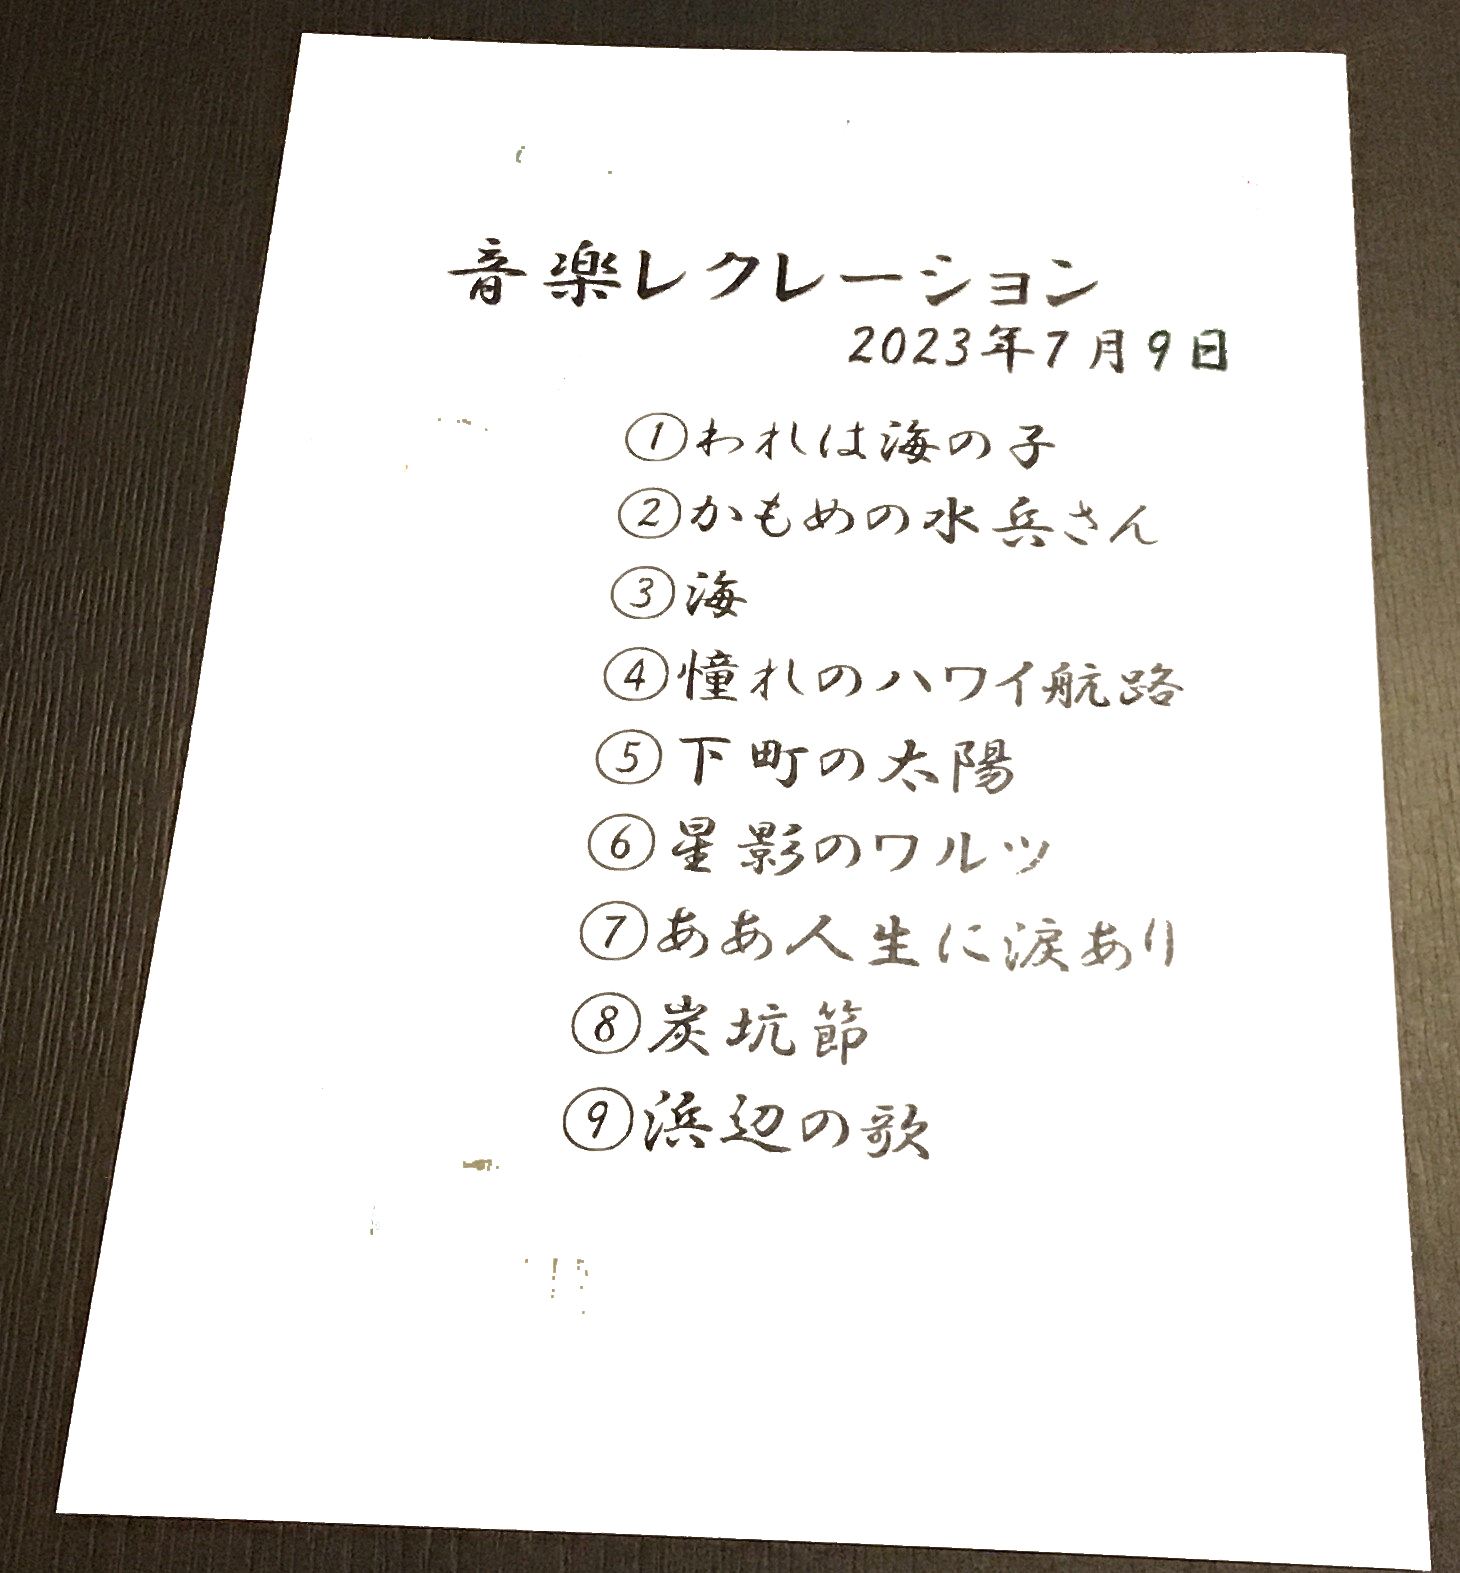 音楽レクレーション
2023年7月9日
①われは海の子
②かもめの水兵さん
③海
④憧れのハワイ航路
⑤下町の太陽
⑥星影のワルツ
⑦ああ人生に涙あり
⑧炭坑節
⑨浜辺の歌